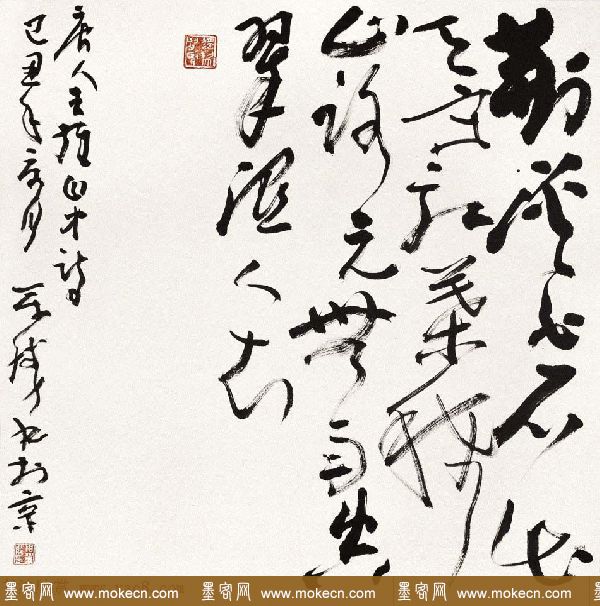 荆溪白石出
天寒红葉稀
山路元無雨空
翠湿人衣
唐人王維山中詩
己丑年
墨客网 www.mokecn.com 墨客网 www.mokecn.com 墨客网 www.mokecn.com